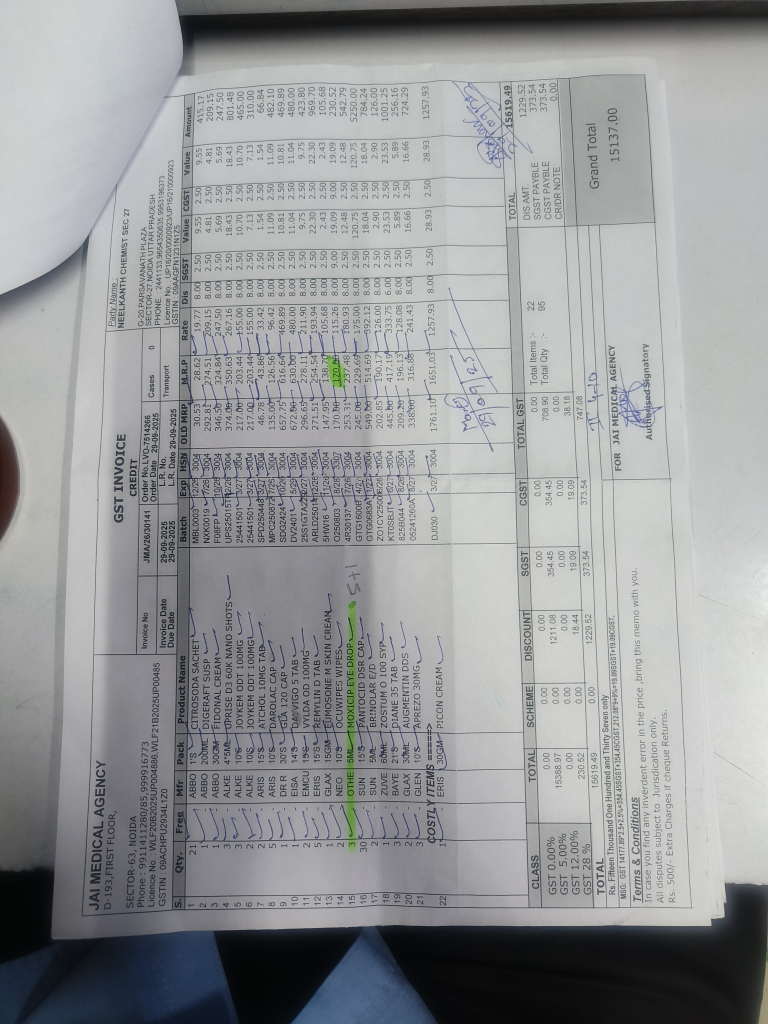 JAI MEDICAL AGENCY
D-193,FIRST FLOOR,
SECTOR-63, NOIDA
Phone : 9911411280/85,999916773
Licence No : WLF20B2025UP004886,WLF21B2025UP00485
GSTIN : 09ACHPU2934L1Z0
GST INVOICE
CREDIT
Invoice No JMA/26/30141 Order No. LVO-7514266
Order Date 29-09-2025
Cases 0
Invoice Date 29-09-2025 L.R. No.
Due Date 29-09-2025 L.R. Date 29-09-2025
Transport
Party Name
NEELKANTH CHEMIST SEC 27
G-20,PARSAVANATH PLAZA
SECTOR-27 NOIDA UTTAR PRADESH
S. Qty. Free Mfr Pack Product Name Batch Exp HSN OLD MRP M.R.P Rate Dis SGST Value CGST Value Amount
1 21 ABBO 1'S CITROSODA SACHET 3004 30.53 28.62 19.77 8.00 2.50 9.55 2.50 9.55 415.17
2 1 ABBO 200ML DIGERAFT SUSP 3004 292.81 274.51 209.15 8.00 2.50 4.81 2.50 4.81 209.15
3 ABBO 30GM FIDONAL CREAM 3004 346.50 324.84 247.50 8.00 2.50 5.69 2.50 5.69 247.50
4 3 ALKE 4*5ML UPRISE D3 60K NANO SHOTS 3004 374.00 350.63 267.16 8.00 2.50 18.43 2.50 18.43 801.48
5 3 ALKE 10'S JOYKEM ODT 100MG 25441501 3/27 3004 217.00 203.44 155.00 8.00 2.50 10.70 2.50 10.70 465.00
6 2 ALKE 10'S JOYKEM ODT 100MG 25441501 3/27 3004 217.00 203.44 155.00 8.00 2.50 7.13 2.50 7.13 310.00
7 2 ARIS 10'S ATCHOL 10MG TAB 3004 46.78 43.86 33.42 8.00 2.50 1.54 2.50 1.54 66.84
8 5 ARIS 15'S DAROLAC CAP 3004 135.00 126.56 96.42 8.00 2.50 11.09 2.50 11.09 482.10
9 1 DR R 30'S GLA 120 CAP 3004 657.75 616.64 469.89 8.00 2.50 10.81 2.50 10.81 469.89
10 1 EISA DV2401 3004 630.00 480.00 8.00 2.50 11.04 2.50 11.04 480.00
11 2 EMCU 15'S VYLDA OD 100MG 3004 296.65 278.11 211.90 8.00 2.50 9.75 2.50 9.75 423.80
12 5 ERIS 15'S REMYLIN D TAB 3004 271.51 254.54 193.94 8.00 2.50 22.30 2.50 22.30 969.70
13 1 GLAX 15GM EUMOSONE M SKIN CREAM 3004 147.95 105.68 8.00 2.50 2.43 2.50 2.43 105.68
14 2 NEO 10'S OCUWIPES WIPES 115.26 8.00 9.00 19.09 9.00 19.09 230.52
15 3 5ML MOXICIP EYE DROP 4R30137 3004 253.31 237.48 180.93 8.00 2.50 12.48 2.50 12.48 542.79
5+1
16 30 SUN 15'S PANTOCID DSR CAP 3004 245.00 229.69 175.00 8.00 2.50 120.75 2.50 120.75 5250.00
17 2 SUN 5ML BRINOLAR E/D 3004 549.00 514.69 392.12 8.00 2.50 18.04 2.50 18.04 784.24
18 ZUVE 60ML ZOSTUM O 100 SYP 3004 202.85 190.17 126.00 8.00 2.50 2.90 2.50 2.90 126.00
19 3 BAYE 21'S DIANE 35 TAB 3004 417.19 333.75 6.00 2.50 23.53 2.50 23.53 1001.25
20 2 GLAX AUGMENTIN DDS 825B044 3004 196.13 128.08 8.00 2.50 5.89 2.50 5.89 256.16
21 3 GLEN 10'S APREZO 30MG 05241260A 3004 241.43 8.00 2.50 16.66 2.50 16.66 724.29
COSTLY ITEMS =====>
22 1 ERIS 30GM PICON CREAM DJ030 3/27 3004 1761.10 1651.03 1257.93 8.00 2.50 28.93 2.50 28.93 1257.93
CLASS TOTAL SCHEME DISCOUNT SGST CGST TOTAL GST
GST 0.00% 0.00 0.00 0.00 0.00 0.00 0.00
GST 5.00% 15388.97 0.00 1211.08 354.45 354.45 708.90
GST 12.00% 0.00 0.00 0.00 0.00 0.00 0.00
GST 28 % 230.52 0.00 18.44 19.09 19.09 38.18
TOTAL 15619.49 0.00 1229.52 373.54 373.54 747.08
Total Items :- 22
Total Qty :- 95
TOTAL 15619.49
DIS AMT. 1229.52
SGST PAYBLE 373.54
CGST PAYBLE 373.54
CR/DR NOTE 0.00
Grand Total
15137.00
Rs. Fifteen Thousand One Hundred and Thirty Seven only
Terms & Conditions
In case you find any inverdent error in the price ,bring this memo with you.
All disputes subject to Jurisdication only.
Rs. 500/- Extra Charges if cheque Returns.
FOR JAI MEDICAL AGENCY
Authorised Signatory